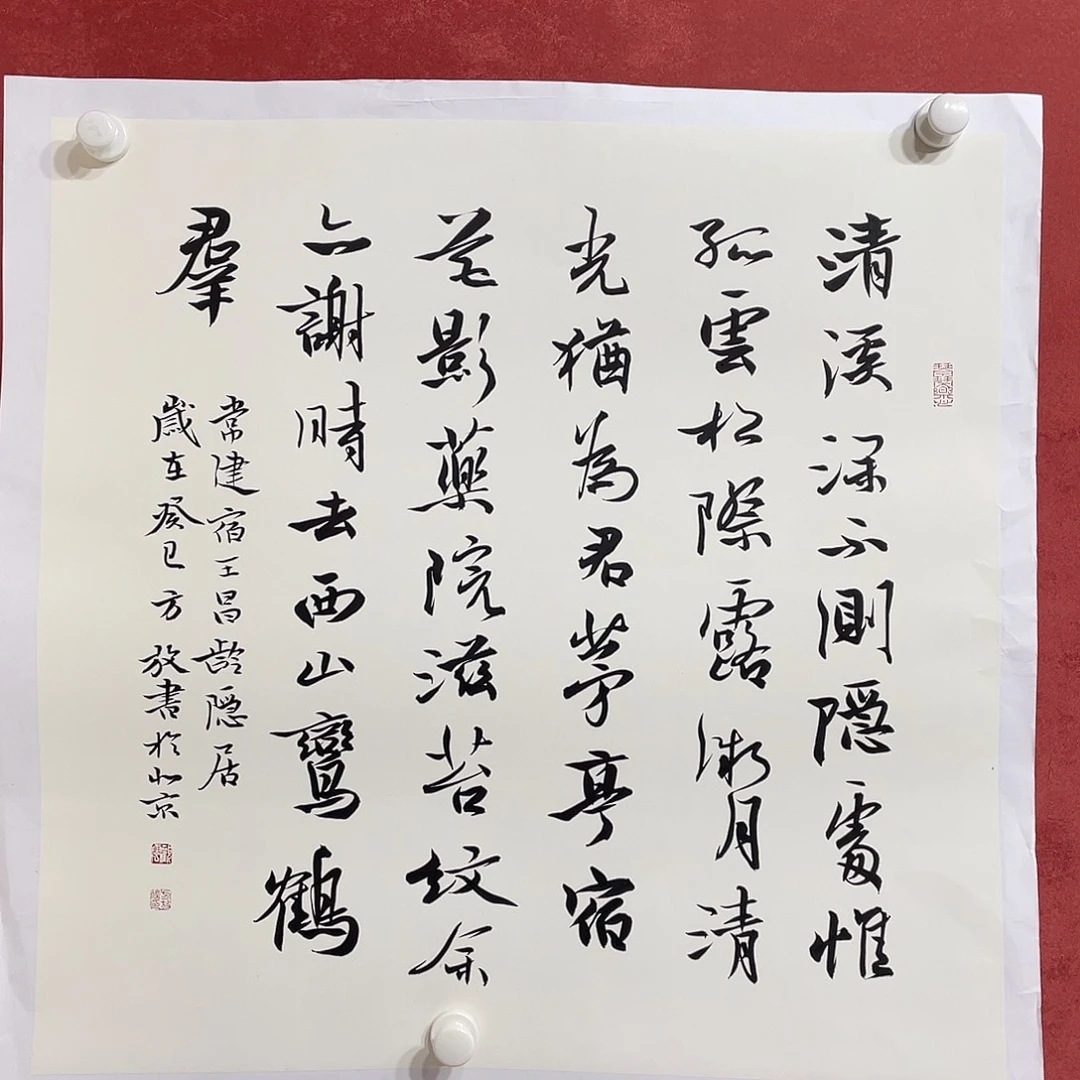 清溪深不測隱處惟
孤雲松際露微月清
光猶為君茅亭宿
花影藥院滋苔紋余
亦謝時去西山鸞鶴
羣
常建宿王昌齡隱居
歲在癸巳方放書於北京